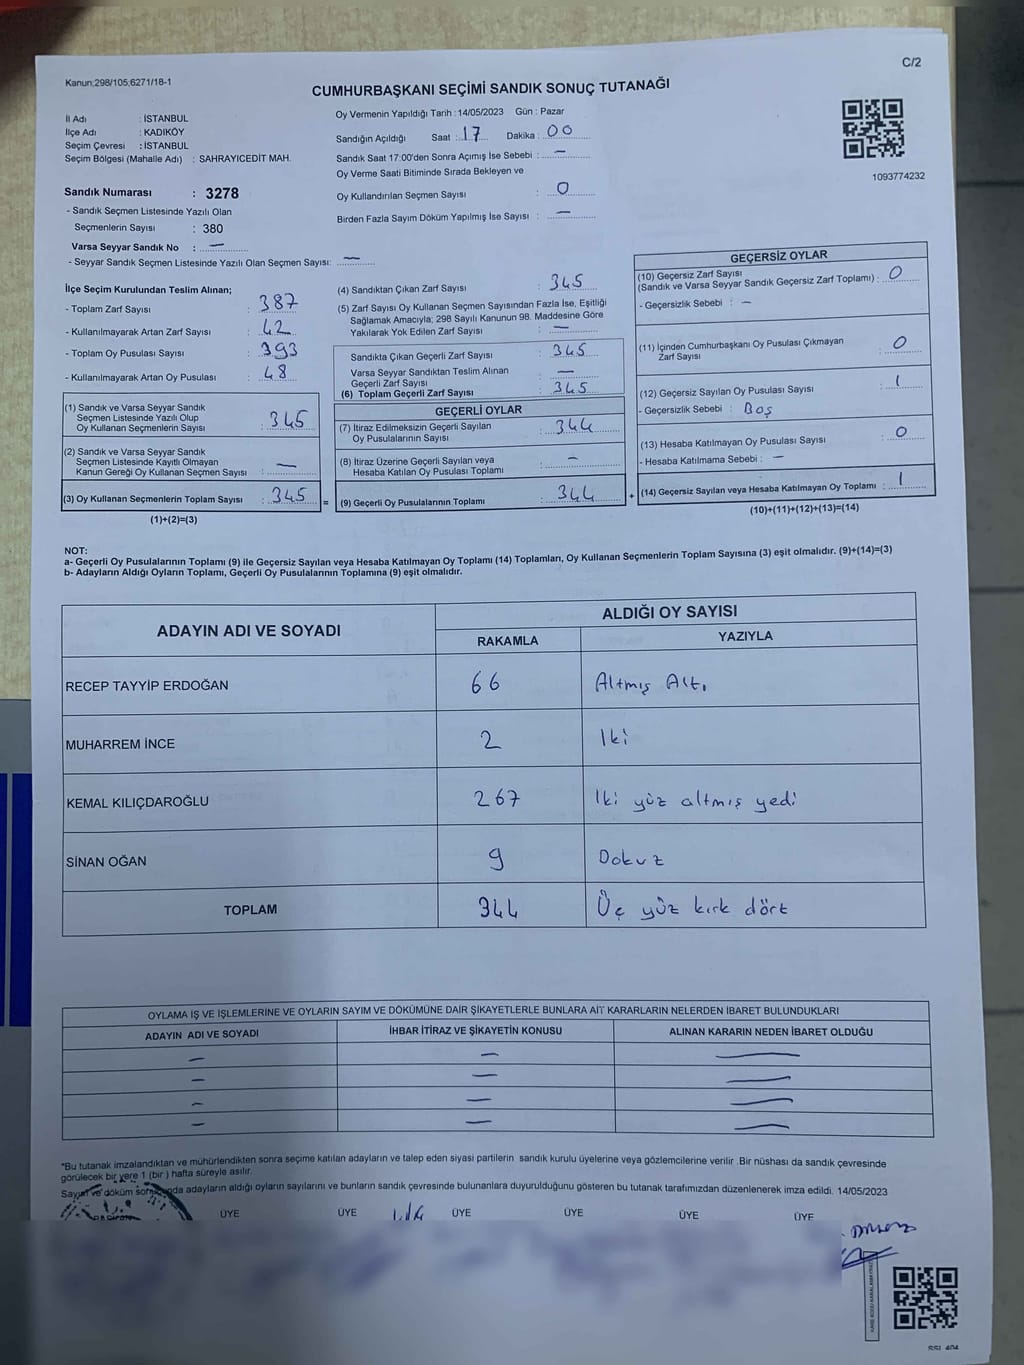 C/2
Kanun:298/105;6271/18-1
CUMHURBAŞKANI SEÇİMİ SANDIK SONUÇ TUTANAĞI
İl Adı : İSTANBUL
İlçe Adı : KADIKÖY
Seçim Çevresi : İSTANBUL
Seçim Bölgesi (Mahalle Adı) : SAHRAYICEDİT MAH.
Sandık Numarası : 3278
- Sandık Seçmen Listesinde Yazılı Olan
Seçmenlerin Sayısı : 380
Varsa Seyyar Sandık No : —
- Seyyar Sandık Seçmen Listesinde Yazılı Olan Seçmen Sayısı: —
Oy Vermenin Yapıldığı Tarih : 14/05/2023 Gün : Pazar
Sandığın Açıldığı Saat : 17 Dakika : 00
Sandık Saat 17:00'den Sonra Açımış İse Sebebi : —
Oy Verme Saati Bitiminde Sırada Bekleyen ve
Oy Kullandırılan Seçmen Sayısı : 0
Birden Fazla Sayım Döküm Yapılmış İse Sayısı : —
1093774232
İlçe Seçim Kurulundan Teslim Alınan;
- Toplam Zarf Sayısı : 387
- Kullanılmayarak Artan Zarf Sayısı : 42
- Toplam Oy Pusulası Sayısı : 393
- Kullanılmayarak Artan Oy Pusulası : 48
(1) Sandık ve Varsa Seyyar Sandık
Seçmen Listesinde Yazılı Olup
Oy Kullanan Seçmenlerin Sayısı : 345
(2) Sandık ve Varsa Seyyar Sandık
Seçmen Listesinde Kayıtlı Olmayan
Kanun Gereği Oy Kullanan Seçmen Sayısı : —
(3) Oy Kullanan Seçmenlerin Toplam Sayısı : 345 =
(1)+(2)=(3)
(4) Sandıktan Çıkan Zarf Sayısı : 345
(5) Zarf Sayısı Oy Kullanan Seçmen Sayısından Fazla İse, Eşitliği
Sağlamak Amacıyla; 298 Sayılı Kanunun 98. Maddesine Göre
Yakılarak Yok Edilen Zarf Sayısı : —
Sandıkta Çıkan Geçerli Zarf Sayısı : 345
Varsa Seyyar Sandıktan Teslim Alınan
Geçerli Zarf Sayısı : —
(6) Toplam Geçerli Zarf Sayısı : 345
GEÇERLİ OYLAR
(7) İtiraz Edilmeksizin Geçerli Sayılan
Oy Pusulalarının Sayısı : 344
(8) İtiraz Üzerine Geçerli Sayılan veya
Hesaba Katılan Oy Pusulası Toplamı : —
(9) Geçerli Oy Pusulalarının Toplamı : 344 +
GEÇERSİZ OYLAR
(10) Geçersiz Zarf Sayısı
(Sandık ve Varsa Seyyar Sandık Geçersiz Zarf Toplamı) : 0
- Geçersizlik Sebebi : —
(11) İçinden Cumhurbaşkanı Oy Pusulası Çıkmayan
Zarf Sayısı : 0
(12) Geçersiz Sayılan Oy Pusulası Sayısı : 1
- Geçersizlik Sebebi : Boş
(13) Hesaba Katılmayan Oy Pusulası Sayısı : 0
- Hesaba Katılmama Sebebi : —
(14) Geçersiz Sayılan veya Hesaba Katılmayan Oy Toplamı : 1
(10)+(11)+(12)+(13)=(14)
NOT:
a- Geçerli Oy Pusulalarının Toplamı (9) ile Geçersiz Sayılan veya Hesaba Katılmayan Oy Toplamı (14) Toplamları, Oy Kullanan Seçmenlerin Toplam Sayısına (3) eşit olmalıdır. (9)+(14)=(3)
b- Adayların Aldığı Oyların Toplamı, Geçerli Oy Pusulalarının Toplamına (9) eşit olmalıdır.
ADAYIN ADI VE SOYADI ALDIĞI OY SAYISI
RAKAMLA YAZIYLA
RECEP TAYYİP ERDOĞAN 66 Altmış Altı
MUHARREM İNCE 2 İki
KEMAL KILIÇDAROĞLU 267 İki yüz altmış yedi
SİNAN OĞAN 9 Dokuz
TOPLAM 344 Üç yüz kırk dört
OYLAMA İŞ VE İŞLEMLERİNE VE OYLARIN SAYIM VE DÖKÜMÜNE DAİR ŞİKAYETLERLE BUNLARA AİT KARARLARIN NELERDEN İBARET BULUNDUKLARI
ADAYIN ADI VE SOYADI İHBAR İTİRAZ VE ŞİKAYETİN KONUSU ALINAN KARARIN NEDEN İBARET OLDUĞU
— — —
— — —
— — —
— — —
*Bu tutanak imzalandıktan ve mühürlendikten sonra seçime katılan adayların ve talep eden siyasi partilerin sandık kurulu üyelerine veya gözlemcilerine verilir .Bir nüshası da sandık çevresinde
görülecek bir yere 1 (bir ) hafta süreyle asılır.
Sayım ve döküm sonunda adayların aldığı oyların sayılarını ve bunların sandık çevresinde bulunanlara duyurulduğunu gösteren bu tutanak tarafımızdan düzenlenerek imza edildi. 14/05/2023
ÜYE ÜYE ÜYE ÜYE ÜYE ÜYE